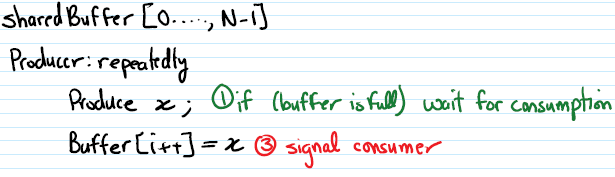 shared Buffer [0....., N-1]
Producer: repeatedly
Produce x; ① if (buffer is full) wait for consumption
Buffer[i++] = x ③ signal consumer